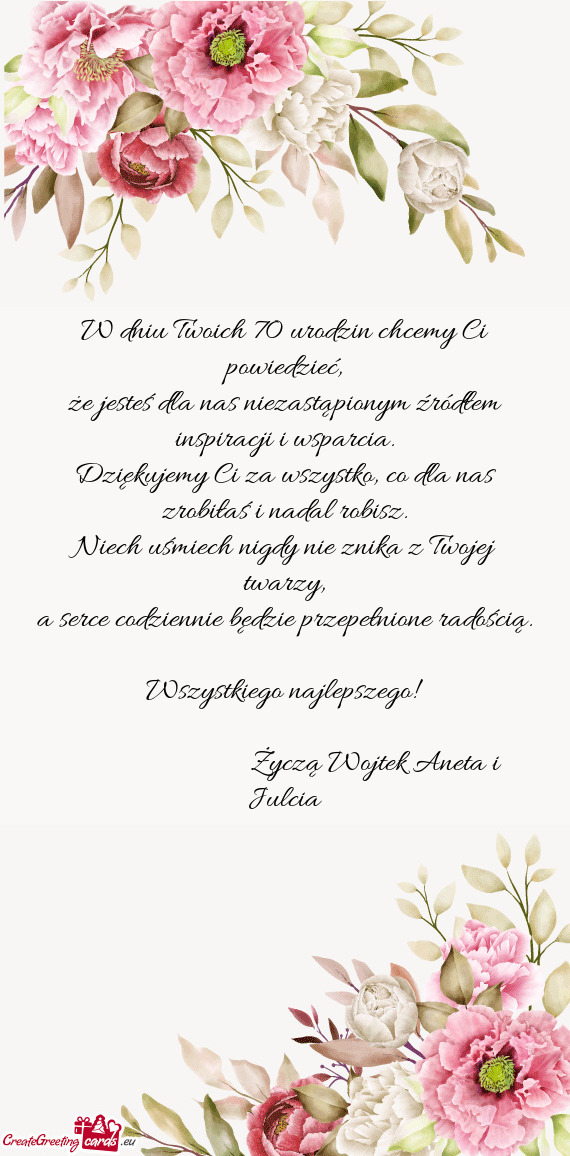 W dniu Twoich 70 urodzin chcemy Ci
powiedzieć,
że jesteś dla nas niezastąpionym źródłem
inspiracji i wsparcia.
Dziękujemy Ci za wszystko, co dla nas
zrobiłaś i nadal robisz.
Niech uśmiech nigdy nie znika z Twojej
twarzy,
a serce codziennie będzie przepełnione radością.
Wszystkiego najlepszego!
Życzą Wojtek Aneta i
Julcia
CreateGreeting cards .eu